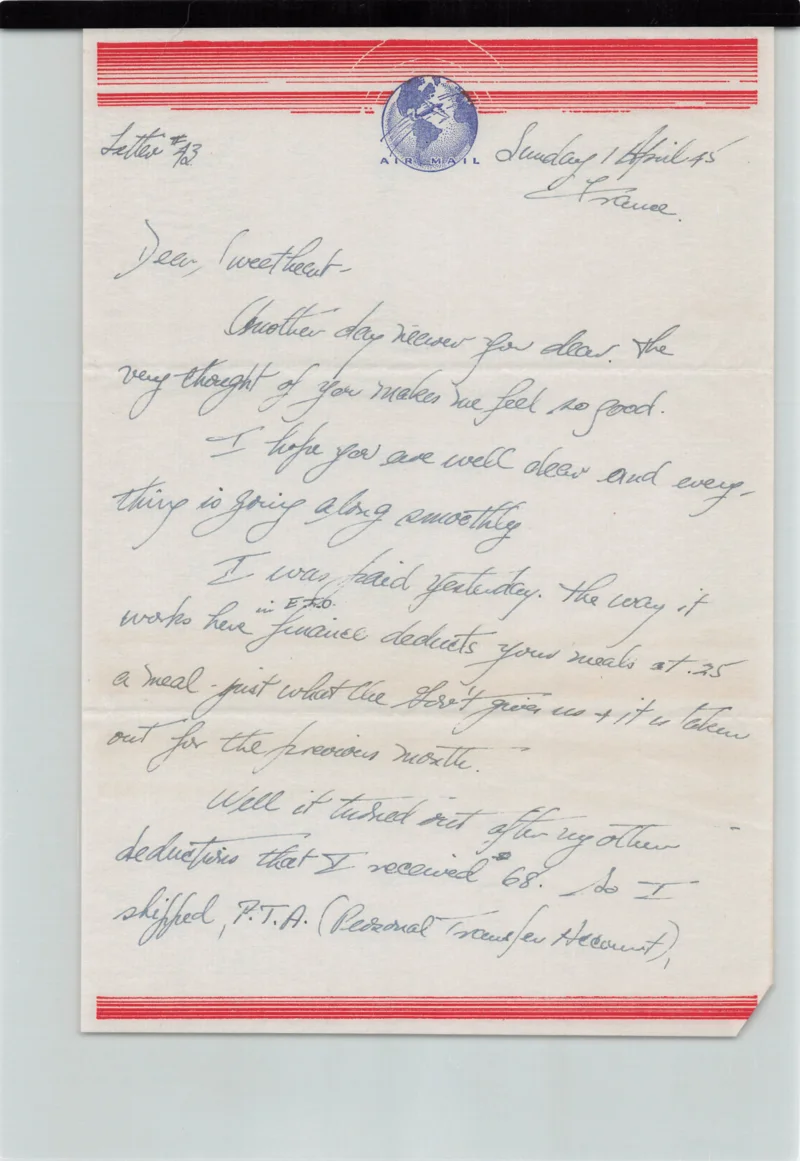 Letter #43
AIR MAIL
Sunday 1 April 45
France.
Dear, Sweetheart-
Another day nearer you dear. The
very thought of you makes me feel so good.
I hope you are well dear and every-
thing is going along smoothly
I was paid yesterday. The way it
works here in E.T.O. finance deducts your meals at .25
a meal - just what the Gov't gives us + it is taken
out for the previous month.
Well it turned out after my other
deductions that I received $68. So I
shipped, P.T.A. (Personal Transfer Account),